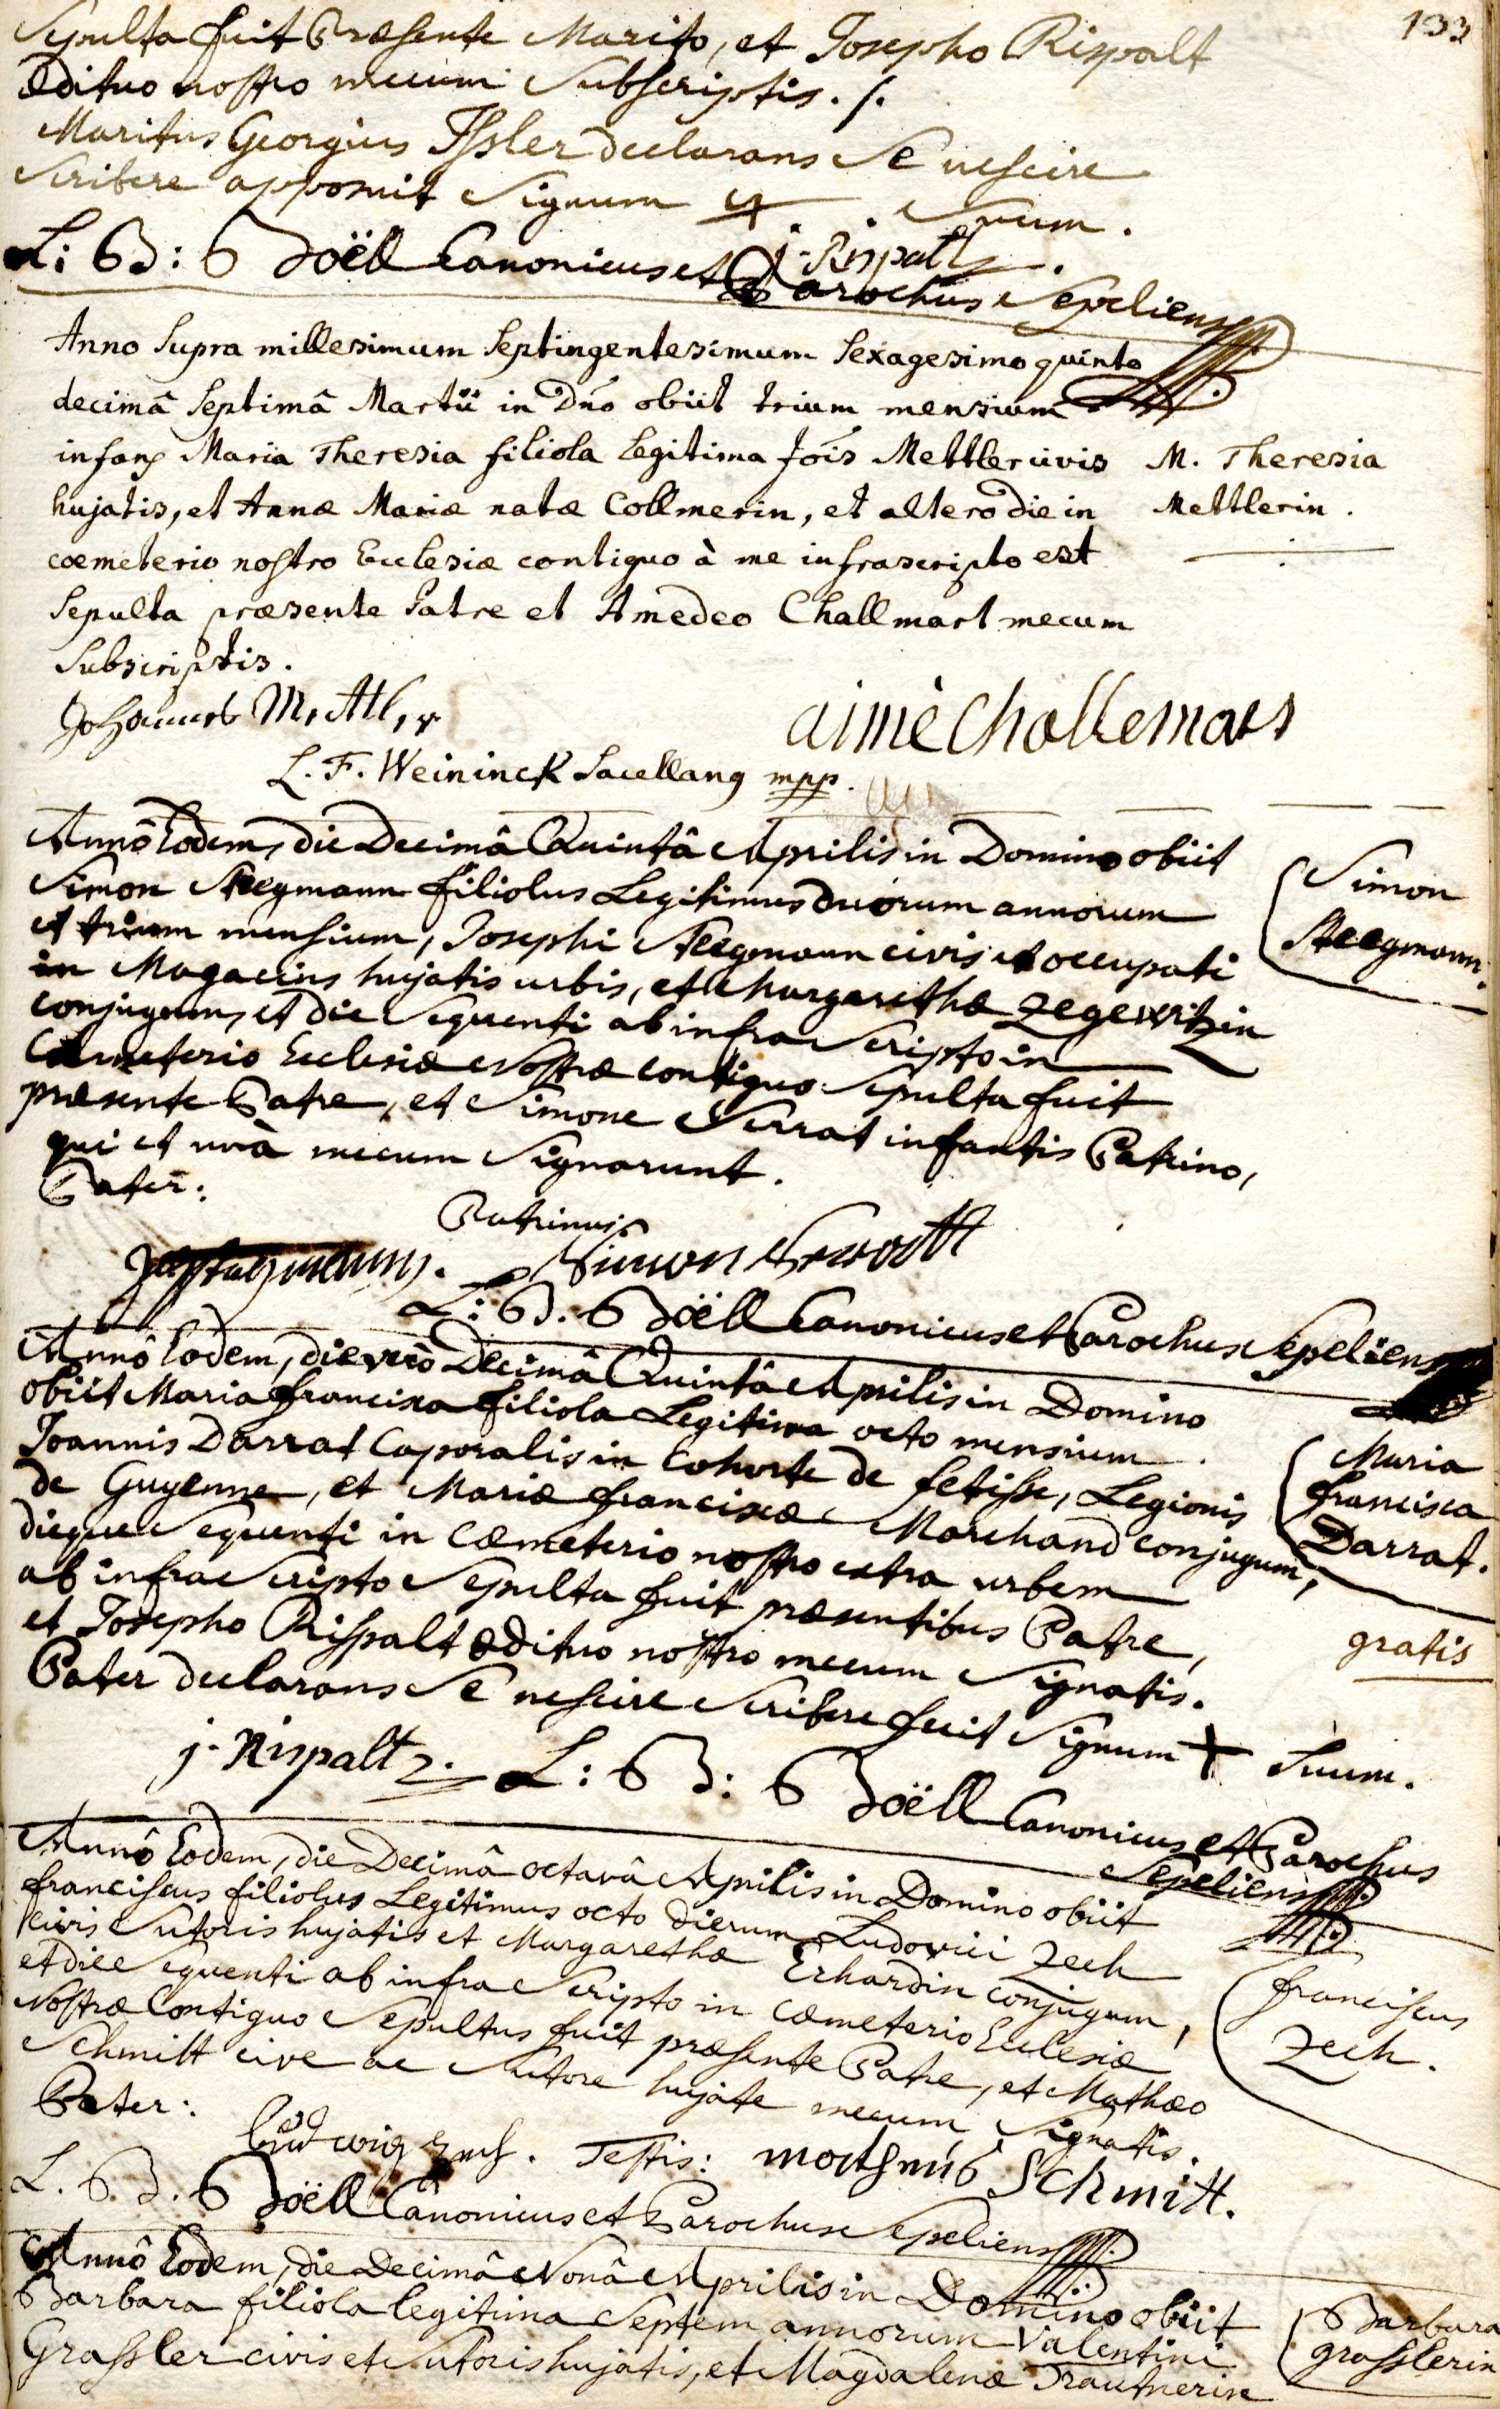 133
Sepulta fuit Præsente Marito, et Josepho Rispalt
Ædituo nostro mecum Subscriptis ./.
Maritus Georgius Issler declarans Se nescire
Scribere apposuit Signum + Suum.
j. Rispaltz.
L: B: Boëll Canonicus et Parochus Sepeliens
Anno Supra millesimum Septingentesimum Sexagesimo quinto
decimâ Septimâ Martii in Dño obiit trium mensium
infans Maria Theresia filiola Legitima Jois Mettler civis
hujatis, et Annæ Mariæ natæ Collmerin, et altero die in
coemeterio nostro Ecclesiæ contiguo à me infrascripto est
Sepulta præsente Patre et Amedeo Challmart mecum
Subscriptis.
M. Theresia
Mettlerin.
Johannes Mettler
aimè Challemars
L. F. Weininck Sacellanus mpp.
Annô Eodem, die Decimâ Quintâ Aprilis in Domino obiit
Simon Stegmann filiolus Legitimus duorum annorum
et trium mensium, Josephi Stegmann civis et occupati
in Magacins hujatis urbis, et Margarethæ Zegewitzin
conjugum, et die Sequenti ab infra Scripto in
Cæmeterio Ecclesiæ Nostræ contiguo Sepulta fuit
præsente Patre, et Simone Serrat infantis Patrino,
qui et unà mecum Signarunt.
Simon
Stegmann.
Pater:
Patrinus:
Simon
L: B. Boëll Canonicus et Parochus Sepeliens
Annô Eodem, die verò Decimâ Quintâ Aprilis in Domino
obiit Maria francisca filiola Legitima octo mensium
Joannis Darrat Caporalis in Cohorte de fetisse, Legionis
de Guyenne, et Mariæ franciscæ Marchand conjugum,
dieque Sequenti in Cæmeterio nostro extra urbem
ab infra Scripto Sepulta fuit præsentibus Patre,
et Josepho Rispalt ædituo nostro mecum Signatis.
Pater declarans Se nescire Scribere fecit Signum + Suum.
Maria
francisca
Darrat.
gratis
j. Rispaltz. L: B: Boëll Canonicus et Parochus
Sepeliens
Annô Eodem, die Decimâ octavâ Aprilis in Domino obiit
franciscus filiolus Legitimus octo dierum Ludovici Zech
civis Sutoris hujatis et Margarethæ Erhardin conjugum,
et die Sequenti ab infra Scripto in Cæmeterio Ecclesiæ
Nostræ Contiguo Sepultus fuit præsente Patre, et Mathæo
Schmitt cive ac Sutore hujate mecum Signatis.
franciscus
Zech.
Pater: Ludwig Zech. Testis: matheus Schmitt.
L. B. Boëll Canonicus et Parochus Sepeliens
Annô Eodem, die Decimâ Nonâ Aprilis in Domino obiit
Barbara filiola legitima Septem annorum Valentini
Grassler civis et Sutoris hujatis, et Magdalenæ Trautnerin
Barbara
grasslerin